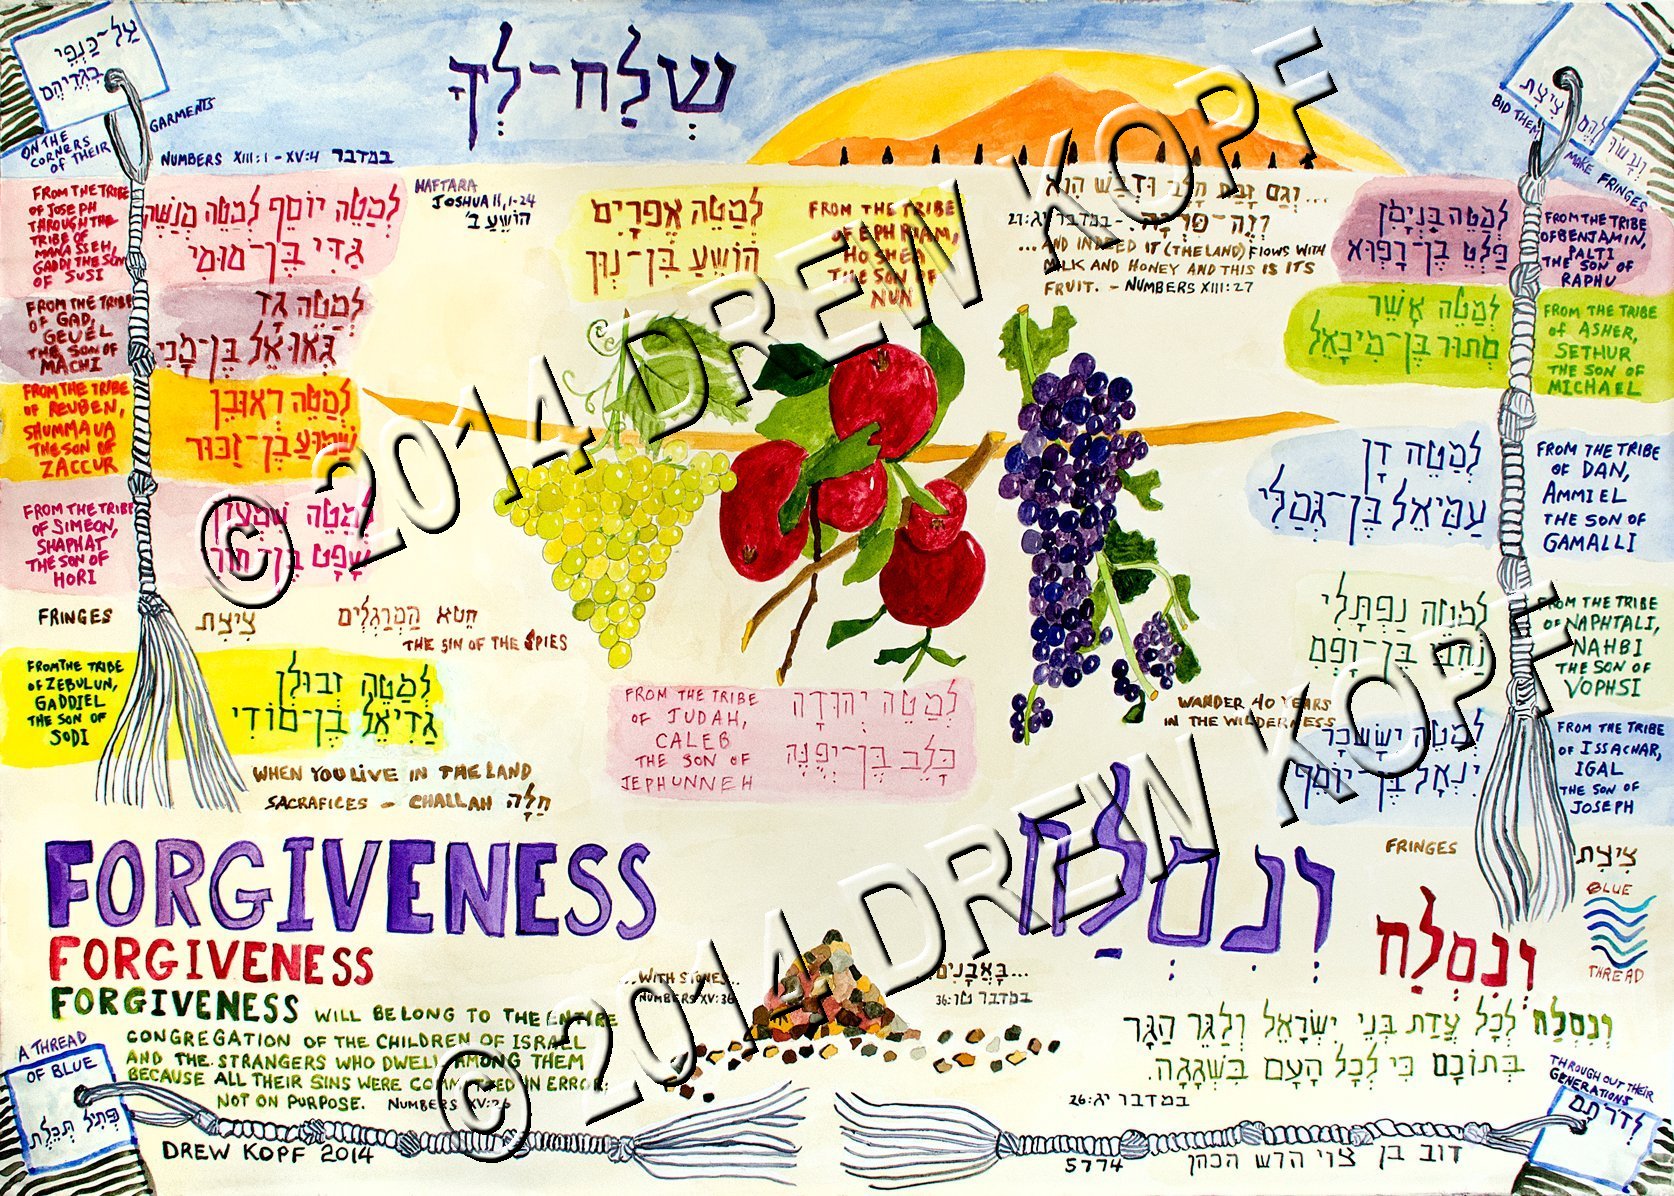 עַל־כַּנְפֵי
בִגְדֵיהֶם
ON THE
CORNERS
OF THEIR
GARMENTS
שְׁלַח־לְךָ
צִיצִת
BID THEM
MAKE FRINGES
NUMBERS XIII:1 - XV:4 במדבר
HAFTARA
JOSHUA II, 1-24
הוֹשֻׁעַ ב'
FROM THE TRIBE
OF JOSEPH
THROUGH THE
TRIBE OF
MANASSEH,
GADDI THE SON
OF SUSI
לְמַטֵּה יוֹסֵף לְמַטֵּה מְנַשֶּׁה
גַּדִּי בֶּן־סוּסִי
FROM THE TRIBE
OF GAD,
GEUEL
THE SON OF
MACHI
לְמַטֵּה גָד
גְּאוּאֵל בֶּן־מָכִי
FROM THE TRIBE
OF REUBEN,
SHUMMAUA
THE SON OF
ZACCUR
לְמַטֵּה רְאוּבֵן
שַׁמּוּעַ בֶּן־זַכּוּר
FROM THE TRIBE
OF SIMEON,
SHAPHAT
THE SON OF
HORI
לְמַטֵּה שִׁמְעוֹן
שָׁפָט בֶּן־חוֹרִי
FRINGES צִיצִת
חֵטְא הַמְרַגְּלִים
THE SIN OF THE SPIES
FROM THE TRIBE
OF ZEBULUN,
GADDIEL
THE SON OF
SODI
לְמַטֵּה זְבוּלֻן
גַּדִּיאֵל בֶּן־סוֹדִי
WHEN YOU LIVE IN THE LAND
SACRAFICES - CHALLAH חַלָּה
לְמַטֵּה אֶפְרָיִם
הוֹשֵׁעַ בִּן־נוּן
FROM THE TRIBE
OF EPHRIAM,
HOSHEA
THE SON OF
NUN
...וְגַם זָבַת חָלָב וּדְבַשׁ הִוא
וְזֶה־פִּרְיָהּ. - במדבר יג:27
...AND INDEED IT (THE LAND) FLOWS WITH
MILK AND HONEY AND THIS IS ITS
FRUIT. - NUMBERS XIII:27
לְמַטֵּה בִנְיָמִן
פַּלְטִי בֶּן־רָפוּא
FROM THE TRIBE
OF BENJAMIN,
PALTI
THE SON OF
RAPHU
לְמַטֵּה אָשֵׁר
סְתוּר בֶּן־מִיכָאֵל
FROM THE TRIBE
OF ASHER,
SETHUR
THE SON OF
MICHAEL
לְמַטֵּה דָן
עַמִּיאֵל בֶּן־גְּמַלִּי
FROM THE TRIBE
OF DAN,
AMMIEL
THE SON OF
GAMALLI
לְמַטֵּה נַפְתָּלִי
נַחְבִּי בֶּן־וָפְסִי
FROM THE TRIBE
OF NAPHTALI,
NAHBI
THE SON OF
VOPHSI
לְמַטֵּה יִשָּׂשכָר
יִגְאָל בֶּן־יוֹסֵף
FROM THE TRIBE
OF ISSACHAR,
IGAL
THE SON OF
JOSEPH
FROM THE TRIBE
OF JUDAH,
CALEB
THE SON OF
JEPHUNNEH
לְמַטֵּה יְהוּדָה
כָּלֵב בֶּן־יְפֻנֶּה
WANDER 40 YEARS
IN THE WILDERNESS
FRINGES צִיצִת
BLUE
THREAD
FORGIVENESS
FORGIVENESS
FORGIVENESS WILL BELONG TO THE ENTIRE
CONGREGATION OF THE CHILDREN OF ISRAEL
AND THE STRANGERS WHO DWELL AMONG THEM
BECAUSE ALL THEIR SINS WERE COMMITTED IN ERROR:
NOT ON PURPOSE. NUMBERS XV:26
וְנִסְלַח
וְנִסְלַח
וְנִסְלַח לְכָל עֲדַת בְּנֵי יִשְׂרָאֵל וְלַגֵּר הַגָּר
בְּתוֹכָם כִּי לְכָל הָעָם בִּשְׁגָגָה.
במדבר יג:26
...WITH STONES...
NUMBERS XV:36
...בָּאֲבָנִים...
במדבר טו:36
A THREAD
OF BLUE
פְּתִיל תְּכֵלֶת
THROUGHOUT THEIR
GENERATIONS
לְדֹרֹתָם
DREW KOPF 2014
5774
דוב בן צוי הרש הכהן
© 2014 DREW KOPF
© 2014 DREW KOPF